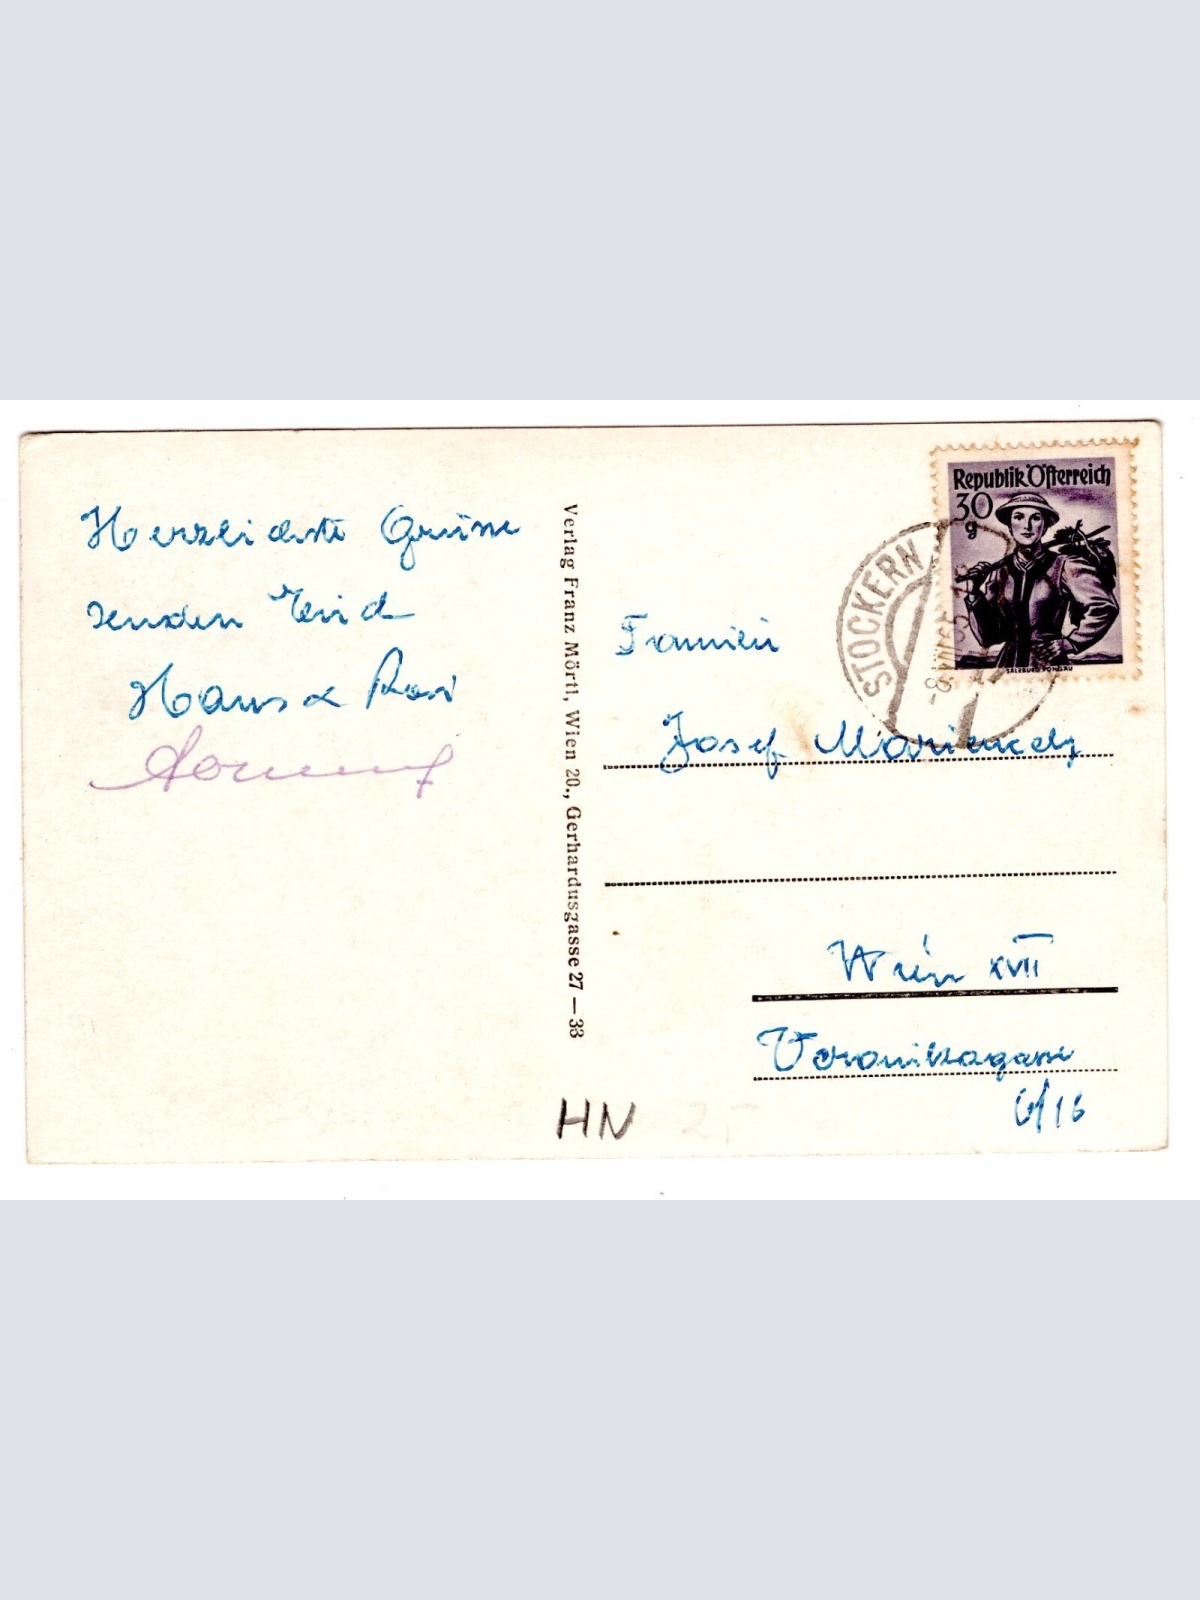 Herzlichste Grüsse
senden Euch
Hans & Rosi
Verlag Franz Mörtl, Wien 20., Gerhardusgasse 27 — 33
Republik Österreich
30
g
SALZBURG PONGAU
STOCKERN
Familie
Josef
Wien XVII
Veronikagasse
6/16
HN